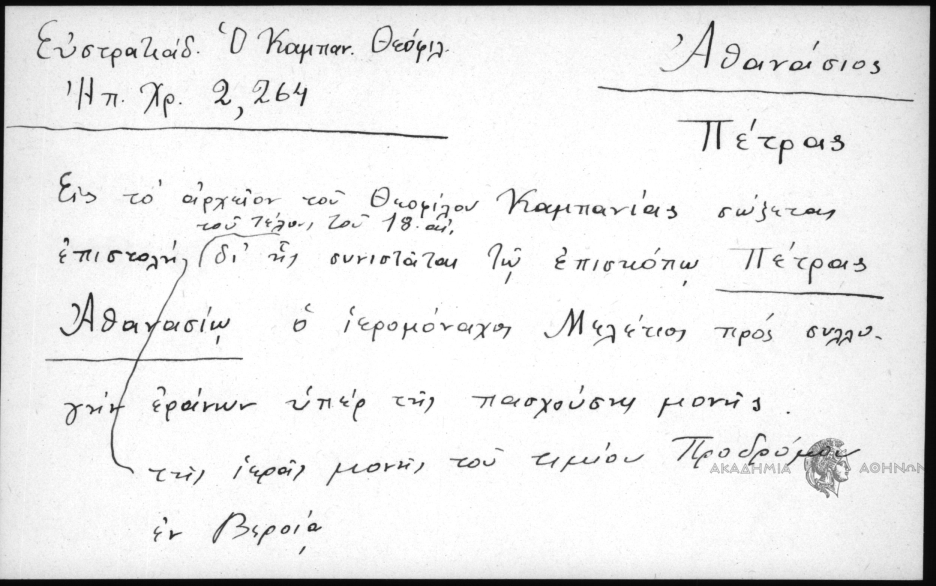 Εὐστρατιάδ. Ὁ Καμπαν. Θεόφιλ.
Ἠπ. Χρ. 2, 264
Ἀθανάσιος
Πέτρας
Εἰς τό ἀρχεῖον τοῦ Θεοφίλου Καμπανίας σώζεται
τοῦ τέλους τοῦ 18. αἰ.
ἐπιστολή, δι' ἧς συνιστᾶται τῷ ἐπισκόπῳ Πέτρας
Ἀθανασίῳ ὁ ἱερομόναχος Μελέτιος πρός συλλο-
γήν ἐράνων ὑπέρ τῆς πασχούσης μονῆς.
τῆς ἱερᾶς μονῆς τοῦ τιμίου Προδρόμου
ἐν Βεροίᾳ
ΑΚΑΔΗΜΙΑ ΑΘΗΝΩΝ